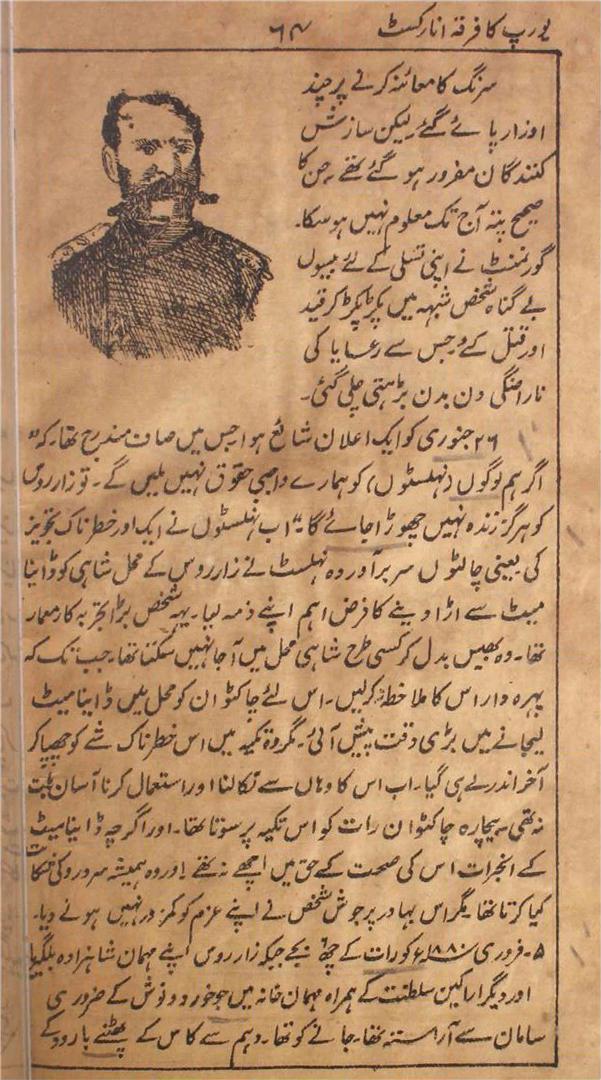 یورپ کا فرقہ انارکسٹ ۶۴
سرنگ کا معائنہ کرنے پر چند
اوزار پائے گئے لیکن سازش
کنندگان مفرور ہو گئے تھے جن کا
صحیح پتہ آج تک معلوم نہیں ہو سکا۔
گورنمنٹ نے اپنی تسلی کے لئے بیسیوں
بے گناہ شخص شبہہ میں پکڑ پکڑ کر قید
اور قتل کئے جس سے رعایا کی
ناراضگی دن بدن بڑھتی چلی گئی۔
۲۶ جنوری کو ایک اعلان شائع ہوا جس میں صاف مندرج تھا۔ کہ "
اگر ہم لوگوں (نہلسٹوں) کو ہمارے واجبی حقوق نہیں ملیں گے۔ تو زار روس
کو ہرگز زندہ نہیں چھوڑا جائے گا۔" اب نہلسٹوں نے ایک اور خطرناک تجویز
کی یعنی چالٹوں سربرآوردہ نہلسٹ نے زار روس کے محل شاہی کو ڈاینا
میٹ سے اڑا دینے کا فرض اہم اپنے ذمہ لیا۔ یہہ شخص بڑا تجربہ کار معمار
تھا۔ وہ بھیس بدل کر کسی طرح شاہی محل میں آ جا نہیں سکتا تھا۔ جب تک کہ
پہرہ دار اس کا ملاحظہ نہ کر لیں۔ اس لئے چاکٹوان کو محل میں ڈاینامیٹ
لیجانے میں بڑی دقت پیش آئی۔ مگر وہ تکیہ میں اس خطرناک شے کو چھپا کر
آخر اندر لے ہی گیا۔ اب اس کا وہاں سے نکالنا اور استعمال کرنا آسان بات
نہ تھی بیچارہ چاکٹوان رات کو اس تکیہ پر سوتا تھا۔ اور اگرچہ ڈاینامیٹ
کے انجرات اس کی صحت کے حق میں اچھے نہ تھے اور وہ ہمیشہ سردرد کی شکایت
کیا کرتا تھا مگر اس بہادر پرجوش شخص نے اپنے عزم کو کمزور نہیں ہونے دیا۔
۵۔ فروری ۱۸۸۰ء کو رات کے چھ بجے جبکہ زار روس اپنے مہمان شاہزادہ بلگیریا
اور دیگر اراکین سلطنت کے ہمراہ مہمان خانہ میں جو خورد و نوش کے ضروری
سامان سے آراستہ تھا۔ جانے کو تھا۔ دہم سے کاس کے پھٹنے بارود کے